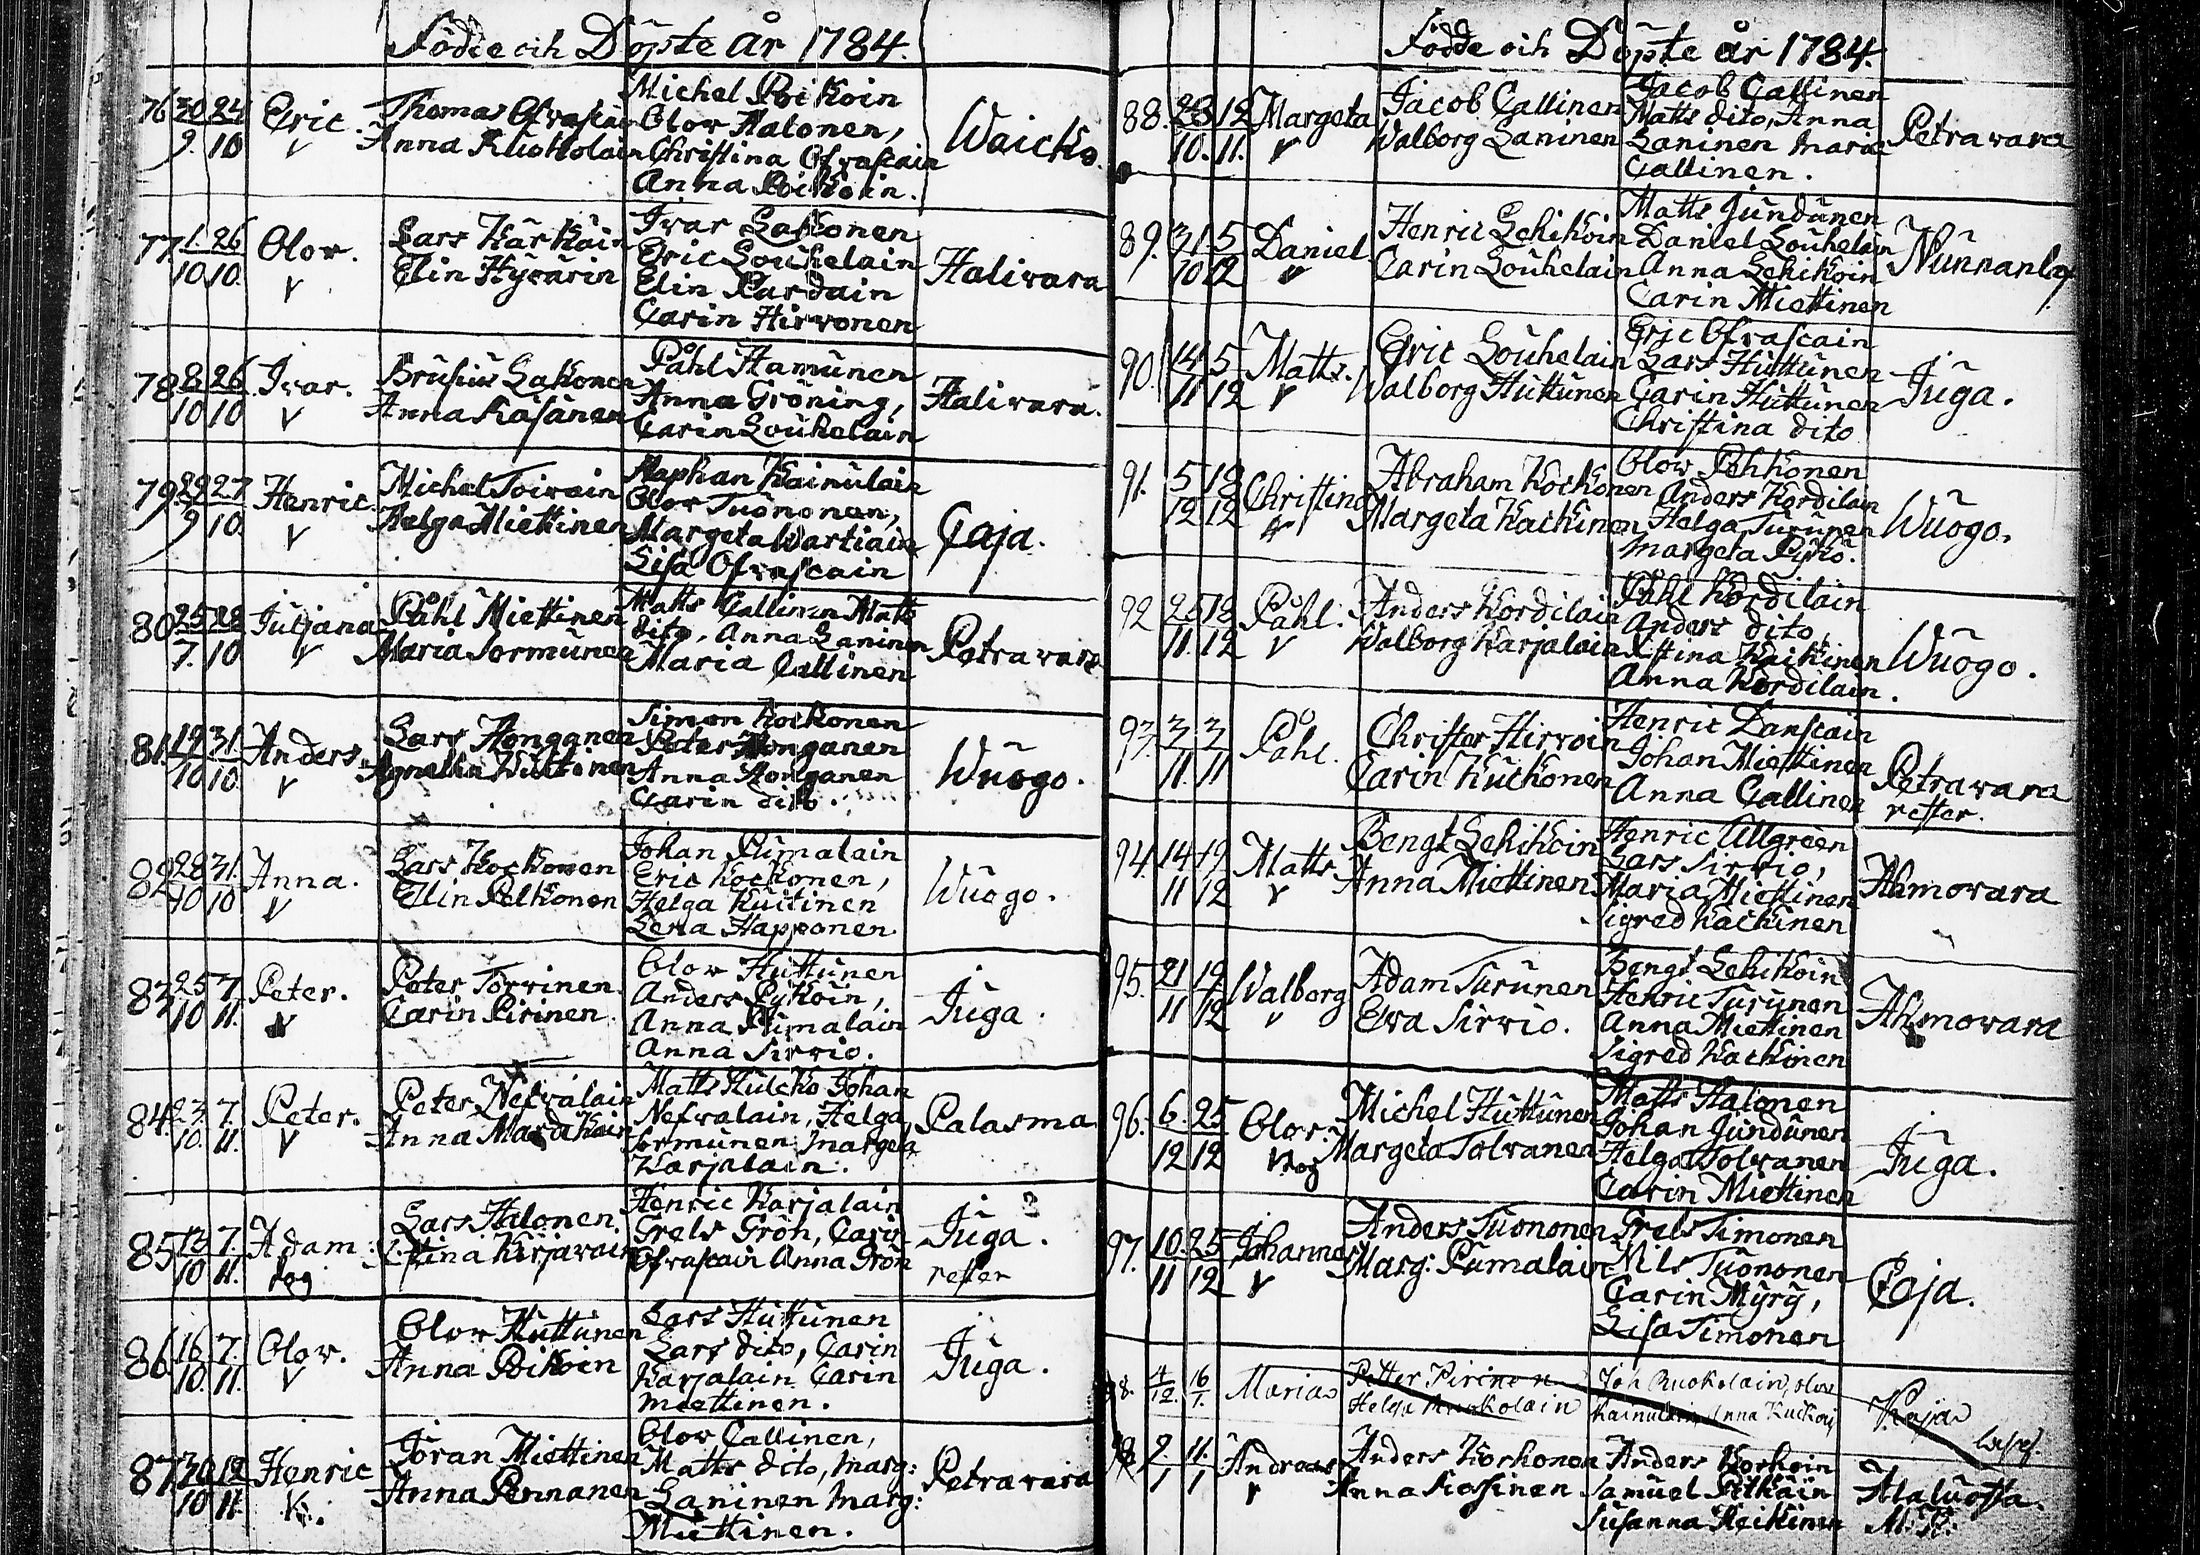 Födde och Döpte år 1784.
76 30 24 Eric. Thomas Ofvaskain Michel Poikoin Waicko.
9. 10 v Anna Ruottolain Olov Halonen,
Christina Ofvaskain
Anna Poikoin.
77 1. 26 Olov. Lars Kärkäin Ivar Lakonen Halivara
10 10. v Elin Hyvärin Eric Louhelain
Elin Pardain
Carin Hirvonen
78 8. 26 Ivar. Brusius Lakonen Påhl Hamunen Halivara.
10 10 v Anna Räsänen Anna Gröning,
Carin Louhelain
79. 29 27 Henric. Michel Toivain Staphan Kainulain Caja.
9 10. v Helga Miettinen Olov Tuononen,
Margeta Wartiain
Lisa Ofvascain
80 25 28 Juliana Påhl Miettinen Matts Callinen Matts Petravara
7. 10 v Maria Sormunen dito, Anna Laninen
Maria Callinen
81. 19 31. Anders. Lars Honganen Simon Kockonen Wuogo.
10 10. v Agnetha Peter Honganen
Anna Honganen
Carin dito.
82 28 31. Anna. Lars Kockonen Johan Pumalain Wuogo.
10 10 v Elin Pelkonen Eric Kockonen,
Helga Kuitinen
Lena Happonen
83 25 7. Peter. Peter Torvinen Olov Huttunen Juga.
10 11. v Carin Pirinen Anders Pykoin,
Anna Pumalain
Anna Sirviö.
84. 23. 7. Peter. Peter Nefvalain Matts Hulcko Johan Palasma
10. 11. v Anna Nefvalain, Helga
Sormunen Margeta
Karjalain.
85 13 7. Adam. Lars Halonen Henric Karjalain Juga.
10 11. dog Cristina Kirjavain Grels Grön, Carin refter
Ofvascain Anna Grön
86 16. 7. Olov. Olov Huttunen Lars Huttunen Juga.
10. 11. v Anna Poikoin Lars dito, Carin
Karjalain Carin
Miettinen.
87 30 12 Henric Jöran Miettinen Olov Callinen, Petravaara
10 11. K. Anna Pennanen Matts dito, Marg:
Laninen Marg:
Miettinen.
Födde och Döpte år 1784.
88. 23 12 Margeta Jacob Callinen Jacob Callinen Petravara
10. 11. v Walborg Laninen Matts dito, Anna
Laninen Maria
Callinen.
89. 31 5 Daniel Henric Lehikoin Matts Jundunen Nunnanlax
10 12 v Carin Louhelain Daniel Louhelain
Anna Lehikoin
Carin Miettinen
90. 14 5 Matts. Eric Louhelain Eric Ofvascain Juga.
11 12 v Walborg Huttunen Lars Huttunen
Carin Huttunen
Christina dito
91. 5 18 Christina Abraham Kockonen Olov Pehkonen Wuogo.
12 12 v Margeta Kackinen Anders Kordilain
Helga Turunen
Margeta Pykö.
92 25 18 Påhl. Anders Kordilain Påhl Kordilain Wuogo.
11. 12 v Walborg Karjalain Anders dito,
Cristina Kaikinen
Anna Kordilain.
93. 3 3 Påhl. Christer Hirvoin Henric Danscain Petravara
11. 11 Carin Kuckonen Johan Miettinen refter.
Anna Callinen
94. 14 19 Matts Bengt Lehikoin Henric Allgreen Ahmovara
11 12 v Anna Miettinen Lars Sirviö,
Maria Miettinen
Sigred Kackinen
95. 21 19. Walborg Adam Turunen Bengt Lehikoin Ahmovara
11 12 v Eva Sirviö. Henric Turunen
Anna Miettinen
Sigred Kackinen
96. 6. 25 Olov. Michel Huttunen Matts Halonen Juga.
12 12 v Margeta Tolvanen Johan Jundunen
Helga Tolvanen
Carin Miettinen
97. 10. 25 Johannes Anders Tuononen Grels Timonen Caja.
11 12 v Marg: Pumalain Nils Tuononen
Carin Myry,
Lisa Timonen
98. 4 16 Maria Petter Pirinen Joh Ruokolain, Olov Kaja
12. 1. Helga Ruokolain Kainulain, Anna Kuckoi
98 2 11. Andreas Anders Korhonen Anders Korhoin Alaluosta.
1 1 v Anna Kossinen Samuel Pitkäin M. K:
Susanna Heikinen